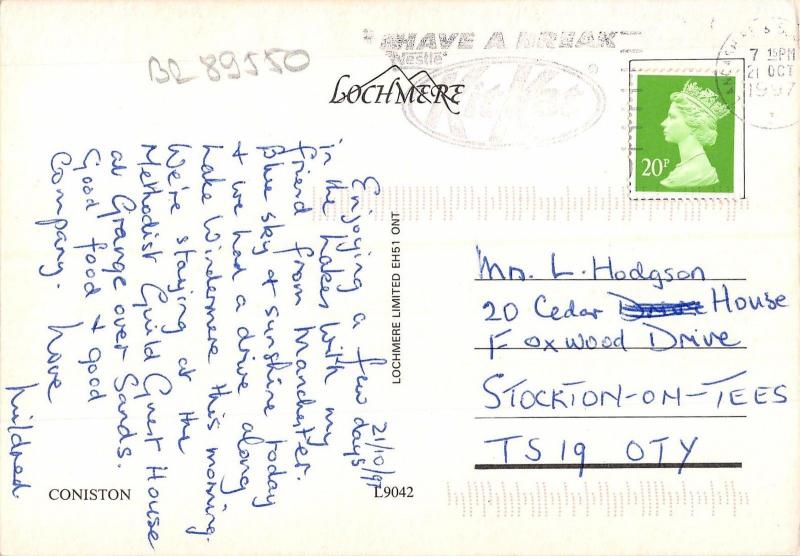 BR 89550
HAVE A BREAK
Nestlé
KitKat
7 15PM
21 OCT
1997
LOCHMERE
20P
21/10/97
Enjoying a few days
in the Lakes with my
friend from Manchester.
Blue sky & sunshine today
& we had a drive along
Lake Windermere this morning.
We're staying at the
Methodist Guild Guest House
at Grange over Sands.
Good food & good
Company. Love
Mildred
LOCHMERE LIMITED EH51 ONT
Mrs. L. Hodgson
20 Cedar Drive House
Foxwood Drive
STOCKTON-ON-TEES
TS19 OTY
CONISTON
L9042